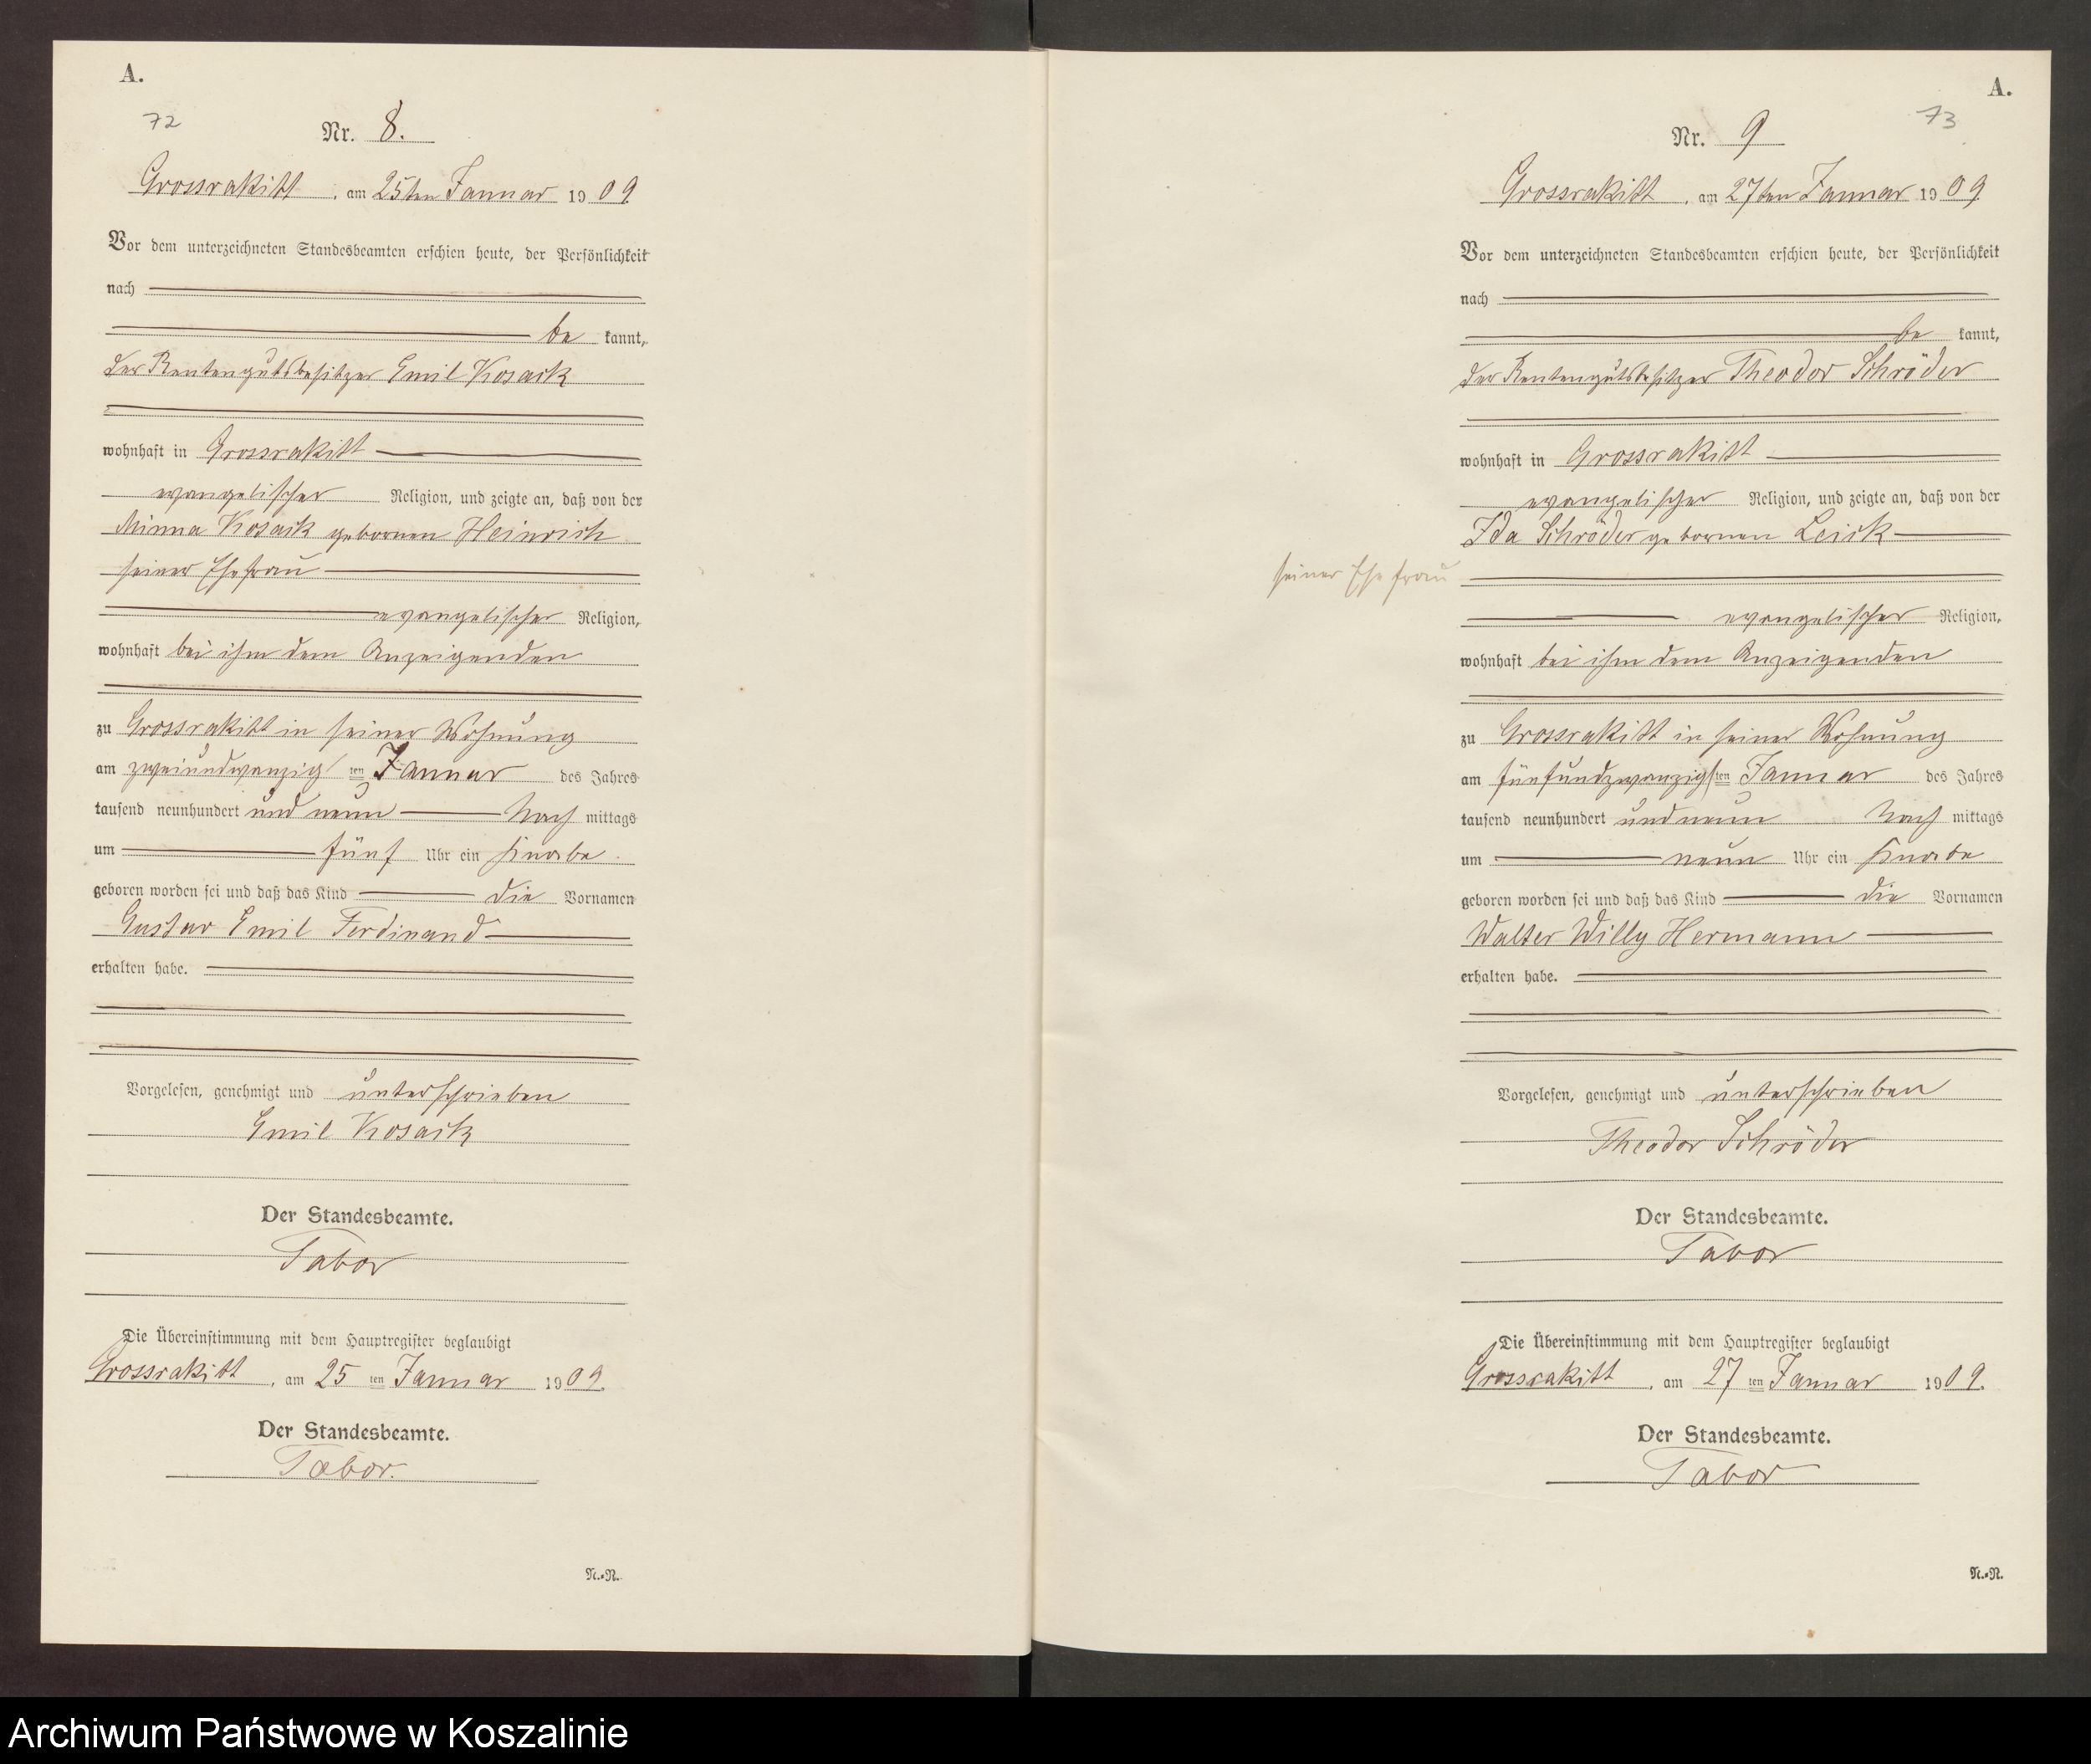 A.
72
Nr. 8.
Grossrakitt, am 25ten Januar 1909.
Vor dem unterzeichneten Standesbeamten erschien heute, der Persönlichkeit
nach
be kannt,
der Rentengutsbesitzer Emil Kosack
wohnhaft in Grossrakitt
evangelischer Religion, und zeigte an, daß von der
Minna Kosack gebornen Heinrich
seiner Ehefrau
evangelischer Religion,
wohnhaft bei ihm dem Anzeigenden
zu Grossrakitt in seiner Wohnung
am zweiundwanzig ten Januar des Jahres
tausend neunhundert und neun Nach mittags
um fünf Uhr ein Knabe
geboren worden sei und daß das Kind die Vornamen
Gustav Emil Ferdinand
erhalten habe.
Vorgelesen, genehmigt und unterschrieben
Emil Kosack
Der Standesbeamte.
Tabor
Die Übereinstimmung mit dem Hauptregister beglaubigt
Grossrakitt, am 25 ten Januar 1909.
Der Standesbeamte.
Tabor.
N.-N.
A.
73
Nr. 9
Grossrakitt, am 27ten Januar 1909
Vor dem unterzeichneten Standesbeamten erschien heute, der Persönlichkeit
nach
be kannt,
der Rentengutsbesitzer Theodor Schröder
wohnhaft in Grossrakitt
evangelischer Religion, und zeigte an, daß von der
Ida Schröder gebornen Leick
seiner Ehefrau
evangelischer Religion,
wohnhaft bei ihm dem Anzeigenden
zu Grossrakitt in seiner Wohnung
am fünfundzwanzigsten Januar des Jahres
tausend neunhundert und neun Nach mittags
um neun Uhr ein Knabe
geboren worden sei und daß das Kind die Vornamen
Walter Willy Hermann
erhalten habe.
Vorgelesen, genehmigt und unterschrieben
Theodor Schröder
Der Standesbeamte.
Tabor
Die Übereinstimmung mit dem Hauptregister beglaubigt
Grossrakitt, am 27 ten Januar 1909.
Der Standesbeamte.
Tabor
N.-N.
Archiwum Państwowe w Koszalinie